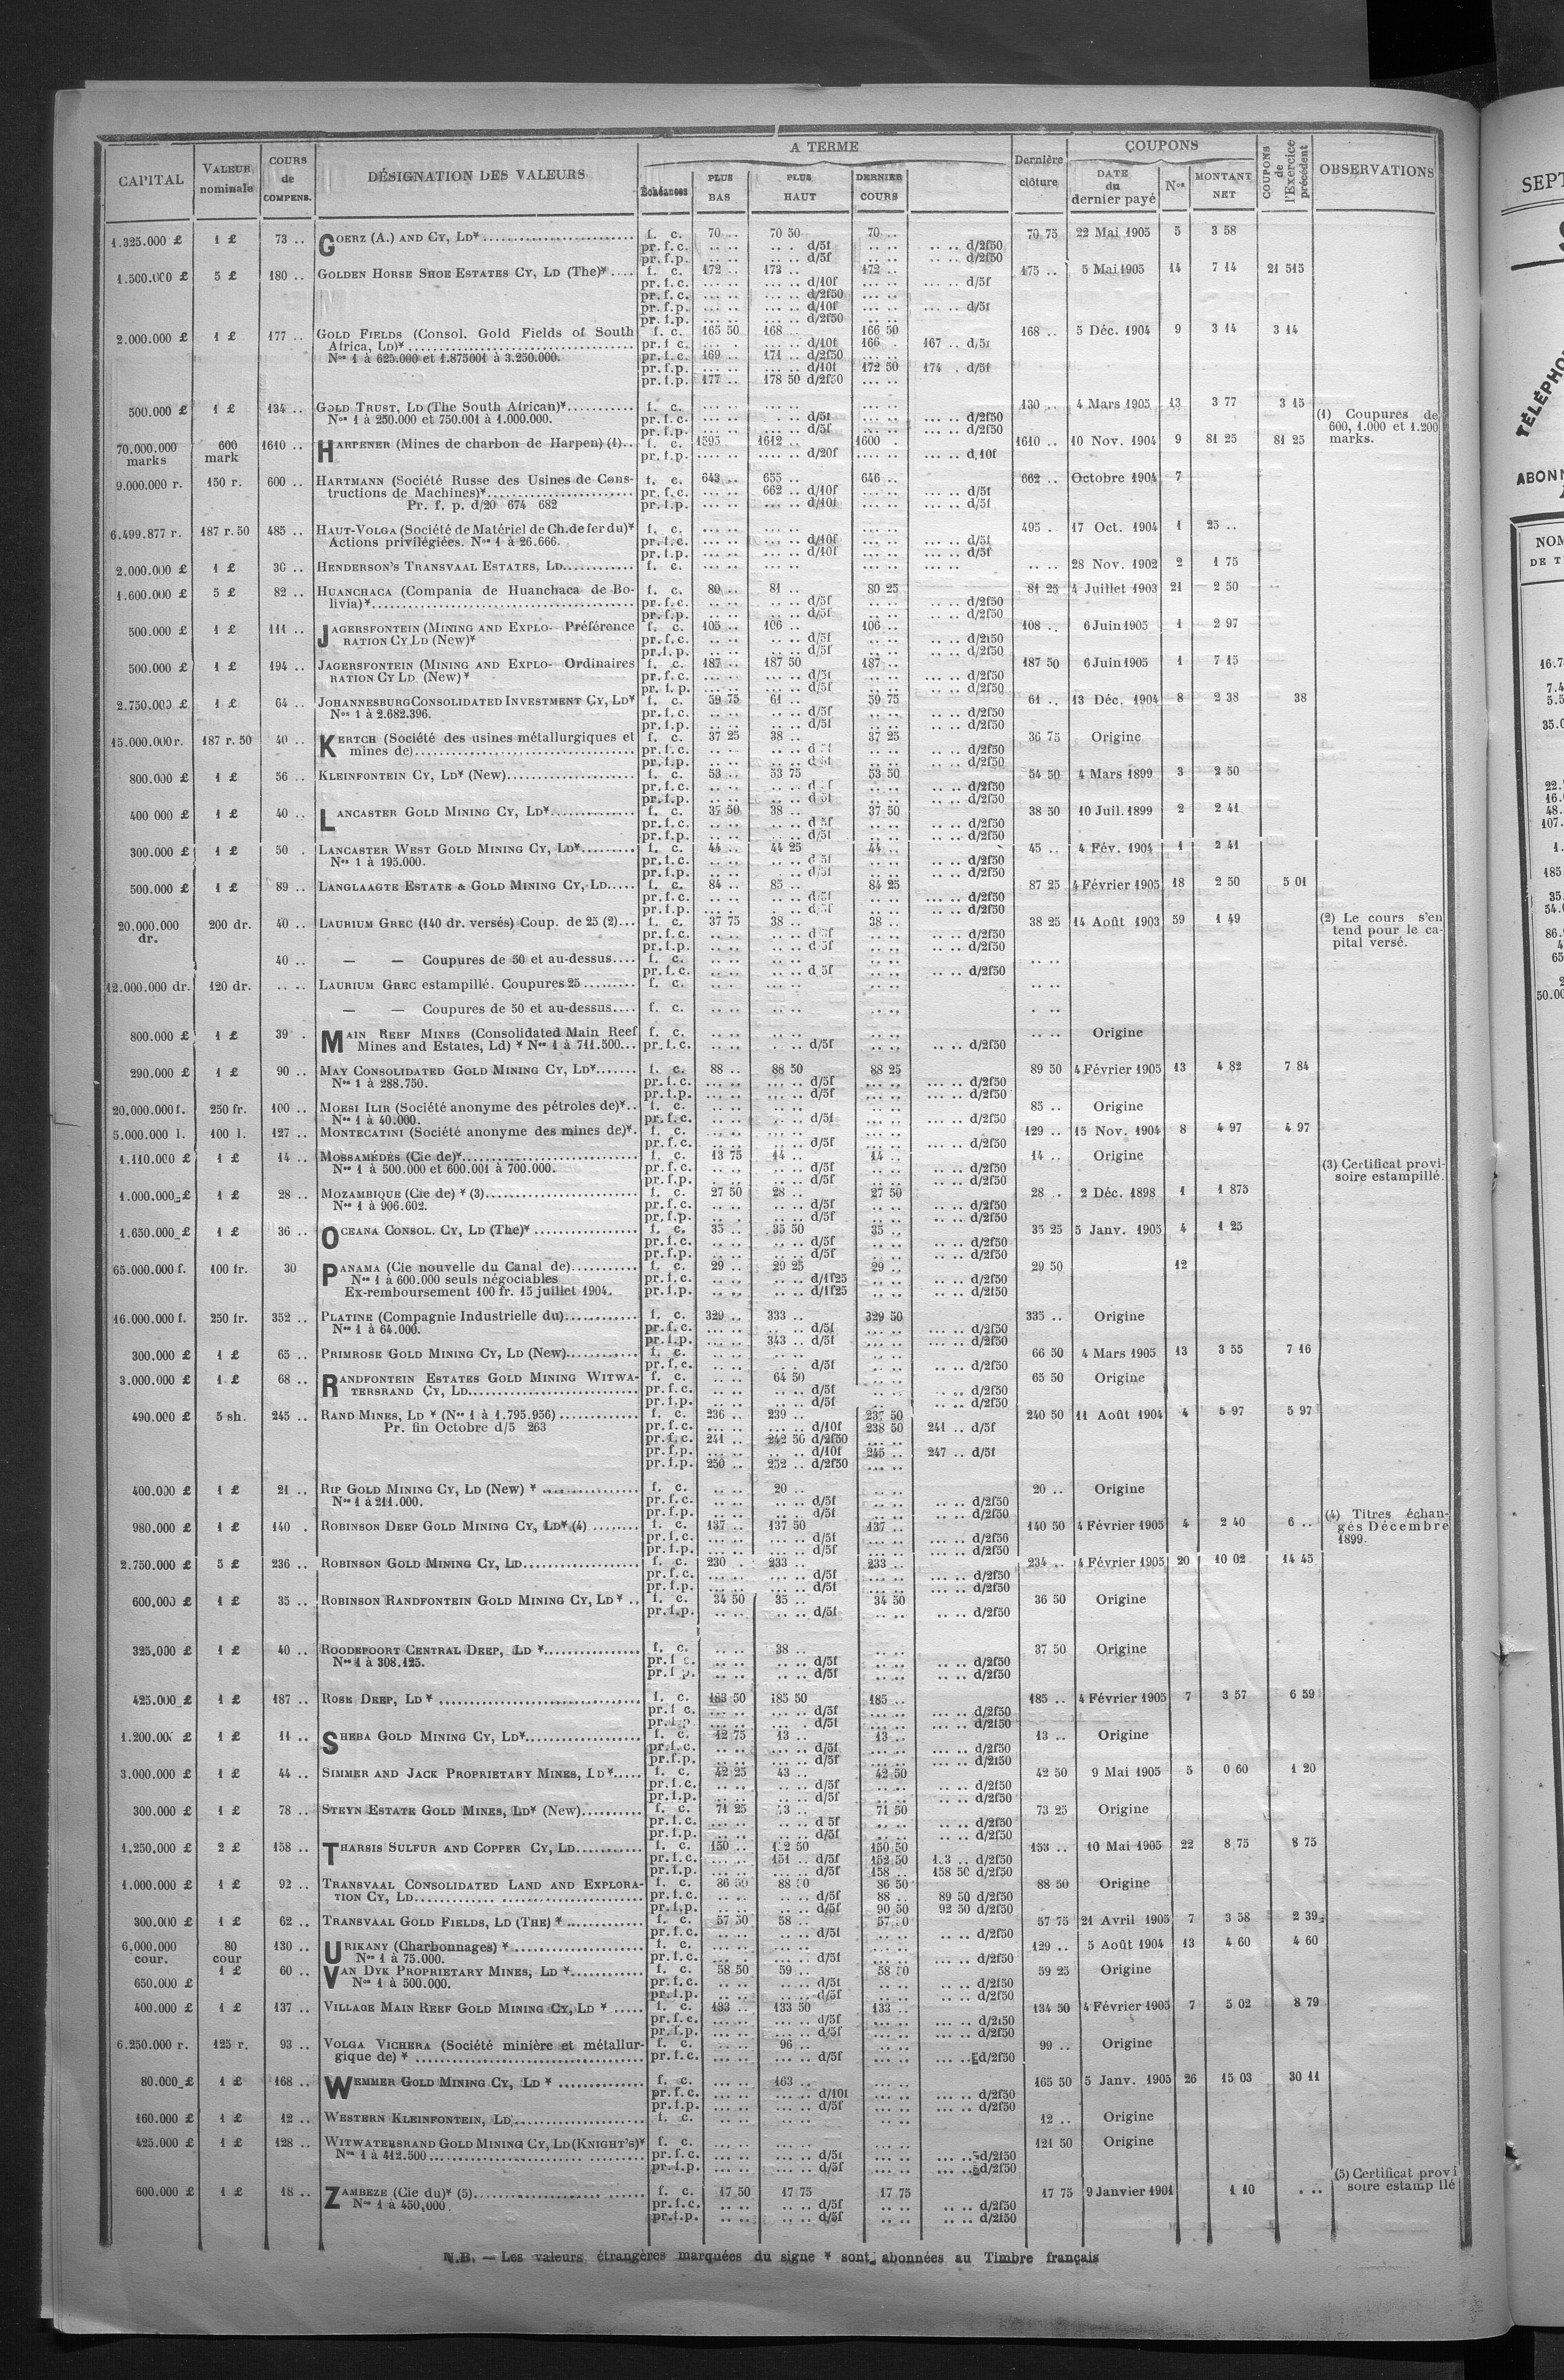 CAPITAL | VALEUR nominale | COURS de COMPENS. | DÉSIGNATION DES VALEURS | A TERME | Dernière clôture | COUPONS | COUPONS de l'Exercice précédent | OBSERVATIONS
Échéances | PLUS BAS | PLUS HAUT | DERNIER COURS | DATE du dernier payé | Nos | MONTANT NET
1.325.000 £ | 1 £ | 73 .. | GOERZ (A.) AND CY, LD* | f. c. | 70 .. | 70 50 | 70 .. | 70 75 | 22 Mai 1905 | 5 | 3 58
pr. f. c. | d/5f | d/2f50
pr. f.p. | d/5f | d/2f50
1.500.000 £ | 5 £ | 180 .. | GOLDEN HORSE SHOE ESTATES CY, LD (The)* | f. c. | 172 .. | 173 .. | 172 .. | 175 .. | 5 Mai 1905 | 14 | 7 14 | 21 515
pr. f. c. | d/10f | d/5f
pr. f. c. | d/2f50
pr. f.p. | d/10f | d/5f
pr. f.p. | d/2f50
2.000.000 £ | 1 £ | 177 .. | GOLD FIELDS (Consol. Gold Fields of South | f. c. | 165 50 | 168 .. | 166 50 | 168 .. | 5 Déc. 1904 | 9 | 3 14 | 3 14
Africa, LD)* | pr. f c. | d/10f | 166 . | 167 .. d/5f
Nos 1 à 625.000 et 1.875001 à 3.250.000. | pr. f.c. | 169 .. | 171 .. d/2f50
pr. f.p. | d/10f | 172 50 | 174 . d/5f
pr. f.p. | 177 .. | 178 50 d/2f50
500.000 £ | 1 £ | 134 .. | GOLD TRUST, LD (The South African)* | f. c. | 130 .. | 4 Mars 1905 | 13 | 3 77 | 3 15 | (1) Coupures de
Nos 1 à 250.000 et 750.001 à 1.000.000. | pr. f.c. | d/5f | d/2f50 | 600, 1.000 et 1.200
pr. f.p. | d/5f | d/2f50 | marks.
70.000.000 marks | 600 mark | 1610 .. | HARPENER (Mines de charbon de Harpen) (1) | f. c. | 1595 | 1612 .. | 1600 . | 1610 .. | 10 Nov. 1904 | 9 | 81 25 | 81 25
pr. f.p. | d/20f | d.10f
9.000.000 r. | 150 r. | 600 .. | HARTMANN (Société Russe des Usines de Cons- | f. c. | 643 .. | 655 .. | 646 .. | 662 .. | Octobre 1904 | 7
tructions de Machines)* | pr. f.c. | 662 .. d/10f | d/5f
Pr. f. p. d/20 674 682 | pr. f.p. | d/10f | d/5f
6.499.877 r. | 187 r. 50 | 485 .. | HAUT-VOLGA (Société de Matériel de Ch. de fer du)* | f. c. | 495 . | 17 Oct. 1904 | 1 | 25 ..
Actions privilégiées. Nos 1 à 26.666. | pr. f.c. | d/10f | d/5f
pr. f.p. | d/10f | d/5f
2.000.000 £ | 1 £ | 30 .. | HENDERSON'S TRANSVAAL ESTATES, LD | f. c. | 28 Nov. 1902 | 2 | 1 75
1.600.000 £ | 5 £ | 82 .. | HUANCHACA (Compania de Huanchaca de Bo- | f. c. | 80 .. | 81 .. | 80 25 | 81 25 | 4 Juillet 1903 | 21 | 2 50
livia)* | pr. f.c. | d/5f | d/2f50
pr. f.p. | d/5f | d/2f50
500.000 £ | 1 £ | 111 .. | JAGERSFONTEIN (MINING AND EXPLO- Préférence | f. c. | 105 .. | 106 .. | 106 .. | 108 .. | 6 Juin 1905 | 1 | 2 97
RATION CY LD (New)* | pr. f.c. | d/5f | d/2f50
pr. f.p. | d/5f | d/2f50
500.000 £ | 1 £ | 194 .. | JAGERSFONTEIN (MINING AND EXPLO- Ordinaires | f. c. | 187 .. | 187 50 | 187 .. | 187 50 | 6 Juin 1905 | 1 | 7 15
RATION CY LD (New)* | pr. f.c. | d/5f | d/2f50
pr. f. p. | d/5f | d/2f50
2.750.000 £ | 1 £ | 64 .. | JOHANNESBURG CONSOLIDATED INVESTMENT CY, LD* | f. c. | 59 75 | 61 .. | 59 75 | 61 .. | 13 Déc. 1904 | 8 | 2 38 | 38
Nos 1 à 2.682.396. | pr. f.c. | d/5f | d/2f50
pr. f.p. | d/5f | d/2f50
15.000.000 r. | 187 r. 50 | 40 .. | KERTCH (Société des usines métallurgiques et | f. c. | 37 25 | 38 .. | 37 25 | 36 75 | Origine
mines de) | pr. f.c. | d/2f50
pr. f.p. | d 5f | d/2f50
800.000 £ | 1 £ | 56 .. | KLEINFONTEIN CY, LD* (New) | f. c. | 53 .. | 53 75 | 53 50 | 54 50 | 4 Mars 1899 | 3 | 2 50
pr. f.c. | d/2f50
pr. f.p. | d 5f | d/2f50
400 000 £ | 1 £ | 40 .. | LANCASTER GOLD MINING CY, LD* | f. c. | 37 50 | 38 .. | 37 50 | 38 50 | 10 Juil. 1899 | 2 | 2 41
pr. f.c. | d 5f | d/2f50
pr. f.p. | d/5f | d/2f50
300.000 £ | 1 £ | 50 . | LANCASTER WEST GOLD MINING CY, LD* | f. c. | 44 .. | 44 25 | 44 .. | 45 .. | 4 Fév. 1904 | 1 | 2 41
Nos 1 à 195.000. | pr. f.c. | d 5f | d/2f50
pr. f.p. | d/5f | d/2f50
500.000 £ | 1 £ | 89 .. | LANGLAAGTE ESTATE & GOLD MINING CY, LD | f. c. | 84 .. | 85 .. | 84 25 | 87 25 | 4 Février 1905 | 18 | 2 50 | 5 01
pr. f.c. | d/5f | d/2f50
pr. f.p. | d/5f | d/2f50
20.000.000 dr. | 200 dr. | 40 .. | LAURIUM GREC (140 dr. versés) Coup. de 25 (2) | f. c. | 37 75 | 38 .. | 38 .. | 38 25 | 14 Août 1903 | 59 | 1 49 | (2) Le cours s'en
pr. f.c. | d 5f | d/2f50 | tend pour le ca-
pr. f.p. | d 5f | d/2f50 | pital versé.
40 .. | — — Coupures de 50 et au-dessus | f. c.
pr. f.c. | d 5f | d/2f50
12.000.000 dr. | 120 dr. | LAURIUM GREC estampillé. Coupures 25 | f. c.
— — Coupures de 50 et au-dessus | f. c.
800.000 £ | 1 £ | 39 . | MAIN REEF MINES (Consolidated Main Reef | f. c. | Origine
Mines and Estates, Ld) * Nos 1 à 711.500 | pr. f.c. | d/5f | d/2f50
290.000 £ | 1 £ | 90 .. | MAY CONSOLIDATED GOLD MINING CY, LD* | f. c. | 88 .. | 88 50 | 88 25 | 89 50 | 4 Février 1905 | 13 | 4 82 | 7 84
Nos 1 à 288.750. | pr. f.c. | d/5f | d/2f50
pr. f.p. | d/5f | d/2f50
20.000.000 f. | 250 fr. | 100 .. | MOESI ILIR (Société anonyme des pétroles de)* | f. c. | 85 .. | Origine
Nos 1 à 40.000. | pr. f.c. | d/5f | d/2f50
5.000.000 l. | 100 l. | 127 .. | MONTECATINI (Société anonyme des mines de)* | f. c. | 129 .. | 15 Nov. 1904 | 8 | 4 97 | 4 97
pr. f.c. | d/5f | d/2f50
1.110.000 £ | 1 £ | 14 .. | MOSSAMÉDÈS (Cie de)* | f. c. | 13 75 | 14 .. | 14 .. | 14 .. | Origine
Nos 1 à 500.000 et 600.001 à 700.000. | pr. f.c. | d/5f | d/2f50 | (3) Certificat provi-
pr. f.p. | d/5f | d/2f50 | soire estampillé.
1.000.000 £ | 1 £ | 28 .. | MOZAMBIQUE (Cie de) * (3) | f. c. | 27 50 | 28 .. | 27 50 | 28 .. | 2 Déc. 1898 | 1 | 1 875
Nos 1 à 906.602. | pr. f.c. | d/5f | d/2f50
pr. f.p. | d/5f | d/2f50
1.650.000 £ | 1 £ | 36 .. | OCEANA CONSOL. CY, LD (The)* | f. c. | 35 .. | 35 50 | 35 .. | 35 25 | 5 Janv. 1905 | 4 | 1 25
pr. f.c. | d/5f | d/2f50
pr. f.p. | d/5f | d/2f50
65.000.000 f. | 100 fr. | 30 | PANAMA (Cie nouvelle du Canal de) | f. c. | 29 .. | 29 25 | 29 .. | 29 50 | 12
Nos 1 à 600.000 seuls négociables | pr. f.c. | d/1f25 | d/2f50
Ex-remboursement 100 fr. 15 juillet 1904. | pr. f.p. | d/1f25 | d/2f50
16.000.000 f. | 250 fr. | 352 .. | PLATINE (Compagnie Industrielle du) | f. c. | 329 .. | 333 .. | 329 50 | 335 .. | Origine
Nos 1 à 64.000. | pr. f.c. | d/5f | d/2f50
pr. f.p. | 343 .. d/5f | d/2f50
300.000 £ | 1 £ | 65 .. | PRIMROSE GOLD MINING CY, LD (New) | f. c. | 66 50 | 4 Mars 1905 | 13 | 3 55 | 7 16
pr. f.c. | d/5f | d/2f50
3.000.000 £ | 1 £ | 68 .. | RANDFONTEIN ESTATES GOLD MINING WITWA- | f. c. | 64 50 | 65 50 | Origine
TERSRAND CY, LD | pr. f.c. | d/5f | d/2f50
pr. f.p. | d/5f | d/2f50
490.000 £ | 5 sh. | 245 .. | RAND MINES, LD * (Nos 1 à 1.795.956) | f. c. | 236 .. | 239 .. | 237 50 | 240 50 | 11 Août 1904 | 4 | 5 97 | 5 97
Pr. fin Octobre d/5 263 | pr. f.c. | d/10f | 238 50 | 241 .. d/5f
pr. f.c. | 241 .. | 242 50 d/2f50
pr. f.p. | d/10f | 245 .. | 247 .. d/5f
pr. f.p. | 250 .. | 252 .. d/2f50
400.000 £ | 1 £ | 21 .. | RIP GOLD MINING CY, LD (New) * | f. c. | 20 .. | 20 .. | Origine
Nos 1 à 211.000. | pr. f.c. | d/5f | d/2f50
pr. f.p. | d/5f | d/2f50 | (4) Titres échan-
980.000 £ | 1 £ | 140 . | ROBINSON DEEP GOLD MINING CY, LD* (4) | f. c. | 137 .. | 137 50 | 137 .. | 140 50 | 4 Février 1905 | 4 | 2 40 | 6 .. | gés Décembre
pr. f.c. | d/5f | d/2f50 | 1899.
pr. f.p. | d/5f | d/2f50
2.750.000 £ | 5 £ | 236 .. | ROBINSON GOLD MINING CY, LD | f. c. | 230 . | 233 .. | 233 .. | 234 .. | 4 Février 1905 | 20 | 10 02 | 14 45
pr. f.c. | d/5f | d/2f50
pr. f.p. | d/5f | d/2f50
600.000 £ | 1 £ | 35 .. | ROBINSON RANDFONTEIN GOLD MINING CY, LD * | f. c. | 34 50 | 35 .. | 34 50 | 36 50 | Origine
pr. f.p. | d/5f | d/2f50
325.000 £ | 1 £ | 40 .. | ROODEPOORT CENTRAL DEEP, LD * | f. c. | 38 .. | 37 50 | Origine
Nos 1 à 308.125. | pr. f c. | d/5f | d/2f50
pr. f p. | d/5f | d/2f50
425.000 £ | 1 £ | 187 .. | ROSE DEEP, LD * | f. c. | 183 50 | 185 50 | 185 .. | 185 .. | 4 Février 1905 | 7 | 3 57 | 6 59
pr. f c. | d/5f | d/2f50
pr. f p. | d/5f | d/2f50
1.200.00 £ | 1 £ | 11 .. | SHEBA GOLD MINING CY, LD* | f. c. | 12 75 | 13 .. | 13 .. | 13 .. | Origine
pr. f.c. | d/5f | d/2f50
pr. f.p. | d/5f | d/2f50
3.000.000 £ | 1 £ | 44 .. | SIMMER AND JACK PROPRIETARY MINES, LD* | f. c. | 42 25 | 43 .. | 42 50 | 42 50 | 9 Mai 1905 | 5 | 0 60 | 1 20
pr. f.c. | d/5f | d/2f50
pr. f.p. | d/5f | d/2f50
300.000 £ | 1 £ | 78 .. | STEYN ESTATE GOLD MINES, LD* (New) | f. c. | 71 25 | 73 .. | 71 50 | 73 25 | Origine
pr. f.c. | d 5f | d/2f50
pr. f.p. | d/5f | d/2f50
1.250.000 £ | 2 £ | 158 .. | THARSIS SULFUR AND COPPER CY, LD | f. c. | 150 .. | 50 | 150 50 | 153 .. | 10 Mai 1905 | 22 | 8 75 | 8 75
pr. f.c. | 151 .. d/5f | 152 50 | d/2f50
pr. f.p. | d/5f | 158 .. | 158 50 d/2f50
1.000.000 £ | 1 £ | 92 .. | TRANSVAAL CONSOLIDATED LAND AND EXPLORA- | f. c. | 86 50 | 88 | 86 50 | 88 50 | Origine
TION CY, LD | pr. f.c. | d/5f | 88 .. | 89 50 d/2f50
pr. f.p. | d/5f | 90 50 | 92 50 d/2f50
300.000 £ | 1 £ | 62 .. | TRANSVAAL GOLD FIELDS, LD (THE) * | f. c. | 57 50 | 58 .. | 57 | 57 75 | 21 Avril 1905 | 7 | 3 58 | 2 39
pr. f.c. | d/5f | d/2f50
6.000.000 cour. | 80 cour | 130 .. | URIKANY (Charbonnages) * | f. c. | 129 .. | 5 Août 1904 | 13 | 4 60 | 4 60
Nos 1 à 75.000. | pr. f.c. | d/5f | d/2f50
650.000 £ | 1 £ | 60 .. | VAN DYK PROPRIETARY MINES, LD * | f. c. | 58 50 | 59 .. | 58 50 | 59 25 | Origine
Nos 1 à 500.000. | pr. f.c. | d/5f | d/2f50
pr. f.p. | d/5f | d/2f50
400.000 £ | 1 £ | 137 .. | VILLAGE MAIN REEF GOLD MINING CY, LD * | f. c. | 133 .. | 133 50 | 133 .. | 134 50 | 4 Février 1905 | 7 | 5 02 | 8 79
pr. f.c. | d/5f | d/2f50
pr. f.p. | d/5f | d/2f50
6.250.000 r. | 125 r. | 93 .. | VOLGA VICHERA (Société minière et métallur- | f. c. | 96 .. | 99 .. | Origine
gique de) * | pr. f.c. | d/5f | d/2f50
80.000 £ | 1 £ | 168 .. | WEMMER GOLD MINING CY, LD * | f. c. | 163 .. | 165 50 | 5 Janv. 1905 | 26 | 15 03 | 30 11
pr. f.c. | d/10f | d/2f50
pr. f.p. | d/5f | d/2f50
160.000 £ | 1 £ | 12 .. | WESTERN KLEINFONTEIN, LD | f. c. | 12 .. | Origine
425.000 £ | 1 £ | 128 .. | WITWATERSRAND GOLD MINING CY, LD (KNIGHT'S)* | f. c. | 121 50 | Origine
Nos 1 à 412.500 | pr. f.c. | d/5f | d/2f50
pr. f.p. | d/5f | d/2f50 | (5) Certificat provi
600.000 £ | 1 £ | 18 .. | ZAMBEZE (Cie du)* (5) | f. c. | 17 50 | 17 75 | 17 75 | 17 75 | 9 Janvier 1901 | 1 10 | soire estamp llé
Nos 1 à 450,000 | pr. f.c. | d/5f | d/2f50
pr. f.p. | d/5f | d/2f50
N.B. — Les valeurs étrangères marquées du signe * sont abonnées au Timbre français
SEPT
TÉLÉPHO
ABONN
NOM
DE T